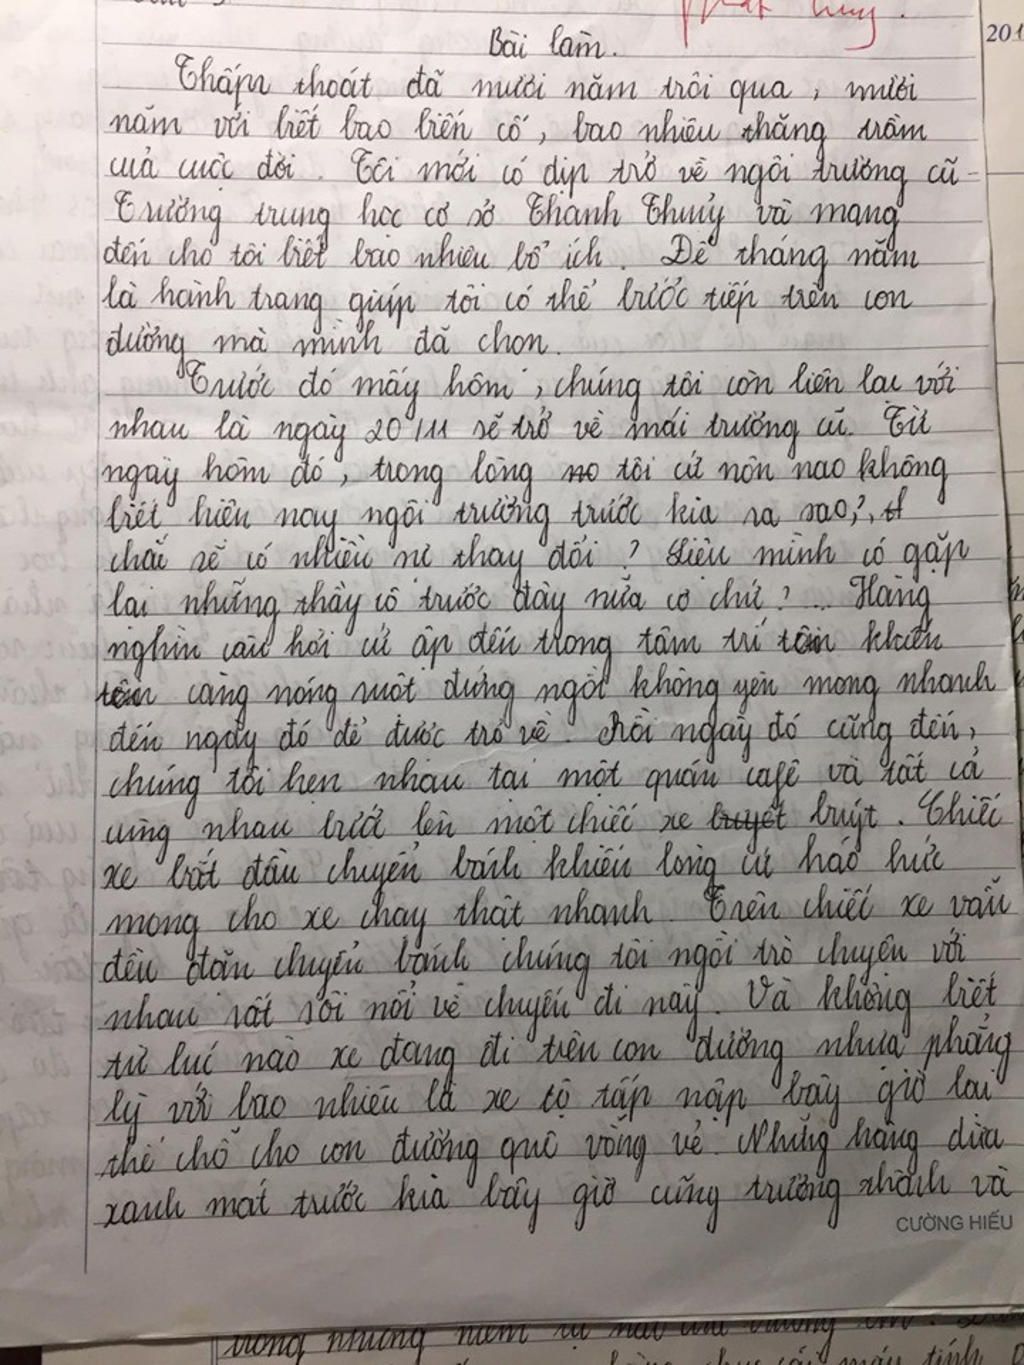 phát huy.
201
Bài làm.
Thấm thoát đã mười năm trôi qua, mười
năm với biết bao biến cố, bao nhiêu thăng trầm
của cuộc đời. Tôi mới có dịp trở về ngôi trường cũ -
Trường trung học cơ sở Thanh Thuỷ và mang
đến cho tôi biết bao nhiêu bổ ích. Để tháng năm
là hành trang giúp tôi có thể bước tiếp trên con
đường mà mình đã chọn.
Trước đó mấy hôm, chúng tôi còn liên lạc với
nhau là ngày 20/11 sẽ trở về mái trường cũ. Từ
ngày hôm đó, trong lòng tôi cứ nôn nao không
biết hiện nay ngôi trường trước kia ra sao?,
chắc sẽ có nhiều sự thay đổi? Liệu mình có gặp
lại những thầy cô trước đây nữa cơ chứ?... Hàng
nghìn câu hỏi cứ ập đến trong tâm trí tôi khiến
tôi càng nóng ruột đứng ngồi không yên mong nhanh
đến ngày đó để được trở về. Rồi ngày đó cũng đến,
chúng tôi hẹn nhau tại một quán cafê và tất cả
cùng nhau bước lên một chiếc xe buyết buýt. Chiếc
xe bắt đầu chuyển bánh khiến lòng cứ háo hức
mong cho xe chạy thật nhanh. Trên chiếc xe vẫn
đều đặn chuyển bánh chúng tôi ngồi trò chuyện với
nhau rất sôi nổi về chuyến đi này. Và không biết
từ lúc nào xe đang đi trên con đường nhựa phẳng
lỳ với bao nhiêu là xe cộ tấp nập bây giờ lại
thế chỗ cho con đường quê vắng vẻ. Những hàng dừa
xanh mát trước kia bây giờ cũng trưởng thành và
CƯỜNG HIẾU